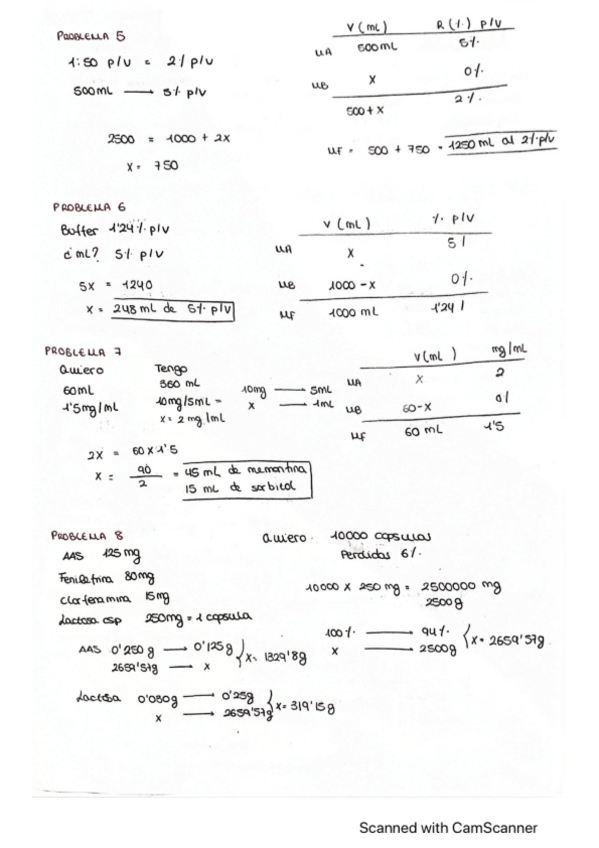 PROBLEMA 5
1:50 p/v = 2% p/v
500mL → 5% p/v
2500 = 1000 + 2x
x = 750
V (mL) R (%) p/v
MA 500mL 5%
MB x 0%
500+x 2%
MF = 500 + 750 = 1250 mL al 2% p/v
PROBLEMA 6
Buffer 1'24% p/v
¿mL? 5% p/v
5x = 1240
x = 248 mL de 5% p/v
V (mL) % p/v
MA x 5%
MB 1000-x 0%
MF 1000 mL 1'24%
PROBLEMA 7
Quiero Tengo
60mL 360 mL
1'5mg/mL 10mg/5mL =
x = 2 mg/mL
10mg → 5mL
x → 1mL
V(mL) mg/mL
MA x 2
MB 60-x 0%
MF 60 mL 1'5
2x = 60 x 1'5
x = 90/2 = 45 mL de memantina
15 mL de sorbitol
PROBLEMA 8
AAS 125mg
Fenilefrina 80mg
Clorfenamina 15mg
Lactosa csp 250mg = 1 capsula
Quiero: 10000 capsulas
Perdidas 6%
10000 x 250 mg = 2500000 mg
2500g
100% → 94%
x → 2500g
x = 2659'57g
AAS 0'250g → 0'125g
2659'57g → x
x = 1329'8g
Lactosa 0'030g → 0'25g
x → 2659'57g
x = 319'15g
Scanned with CamScanner